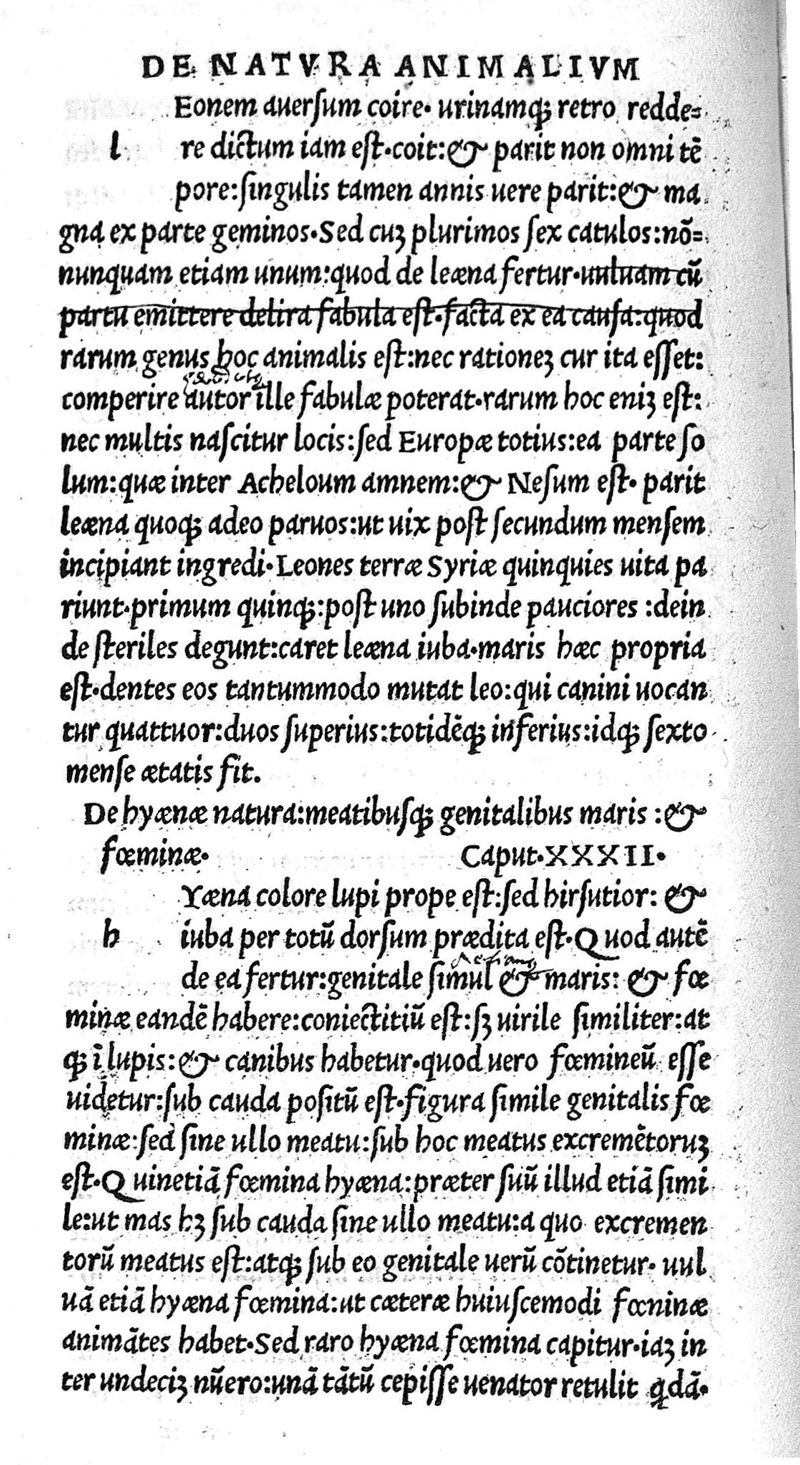 DE NATVRA ANIMALIVM
Eonem auersum coire· urinamq; retro redde=
l re dictum iam est·coit:& parit non omni tē
pore:singulis tamen annis uere parit:& ma
gna ex parte geminos·Sed cuʒ plurimos sex catulos:nō=
nunquam etiam unum:quod de leæna fertur·uuluam cū
partu emittere delira fabula est·facta ex ea causa:quod
rarum genus hoc animalis est:nec rationeʒ cur ita esset:
comperire autor ille fabulæ poterat·rarum hoc eniʒ est:
nec multis nascitur locis:sed Europæ totius:ea parte so
lum:quæ inter Acheloum amnem:& Nesum est· parit
leæna quoq; adeo paruos:ut uix post secundum mensem
incipiant ingredi·Leones terræ Syriæ quinquies uita pa
riunt·primum quinq;:post uno subinde pauciores :dein
de steriles degunt:caret leæna iuba·maris hæc propria
est·dentes eos tantummodo mutat leo:qui canini uocan
tur quattuor:duos superius:totidēq; inferius:idq; sexto
mense ætatis fit.
De hyænæ natura:meatibusq; genitalibus maris :&
fœminæ· Caput·XXXII·
Yæna colore lupi prope est:sed hirsutior: &
h iuba per totū dorsum prædita est·Quod autē
de ea fertur:genitale simul & maris: & fœ
minæ eandē habere:coniectitiū est:sʒ uirile similiter:at
q; ī lupis:& canibus habetur·quod uero fœmineū esse
uidetur:sub cauda positū est·figura simile genitalis fœ
minæ:sed sine ullo meatu:sub hoc meatus excremētoruʒ
est·Quinetiā fœmina hyæna:præter suū illud etiā simi
le:ut mas hʒ sub cauda sine ullo meatu:a quo excremen
torū meatus est:atq; sub eo genitale uerū cōtinetur· uul
uā etiā hyæna fœmina:ut cæteræ huiuscemodi fœninæ
animātes habet·Sed raro hyæna fœmina capitur·iaʒ in
ter undeciʒ nūero:unā tātū cepisse uenator retulit q̄dā·